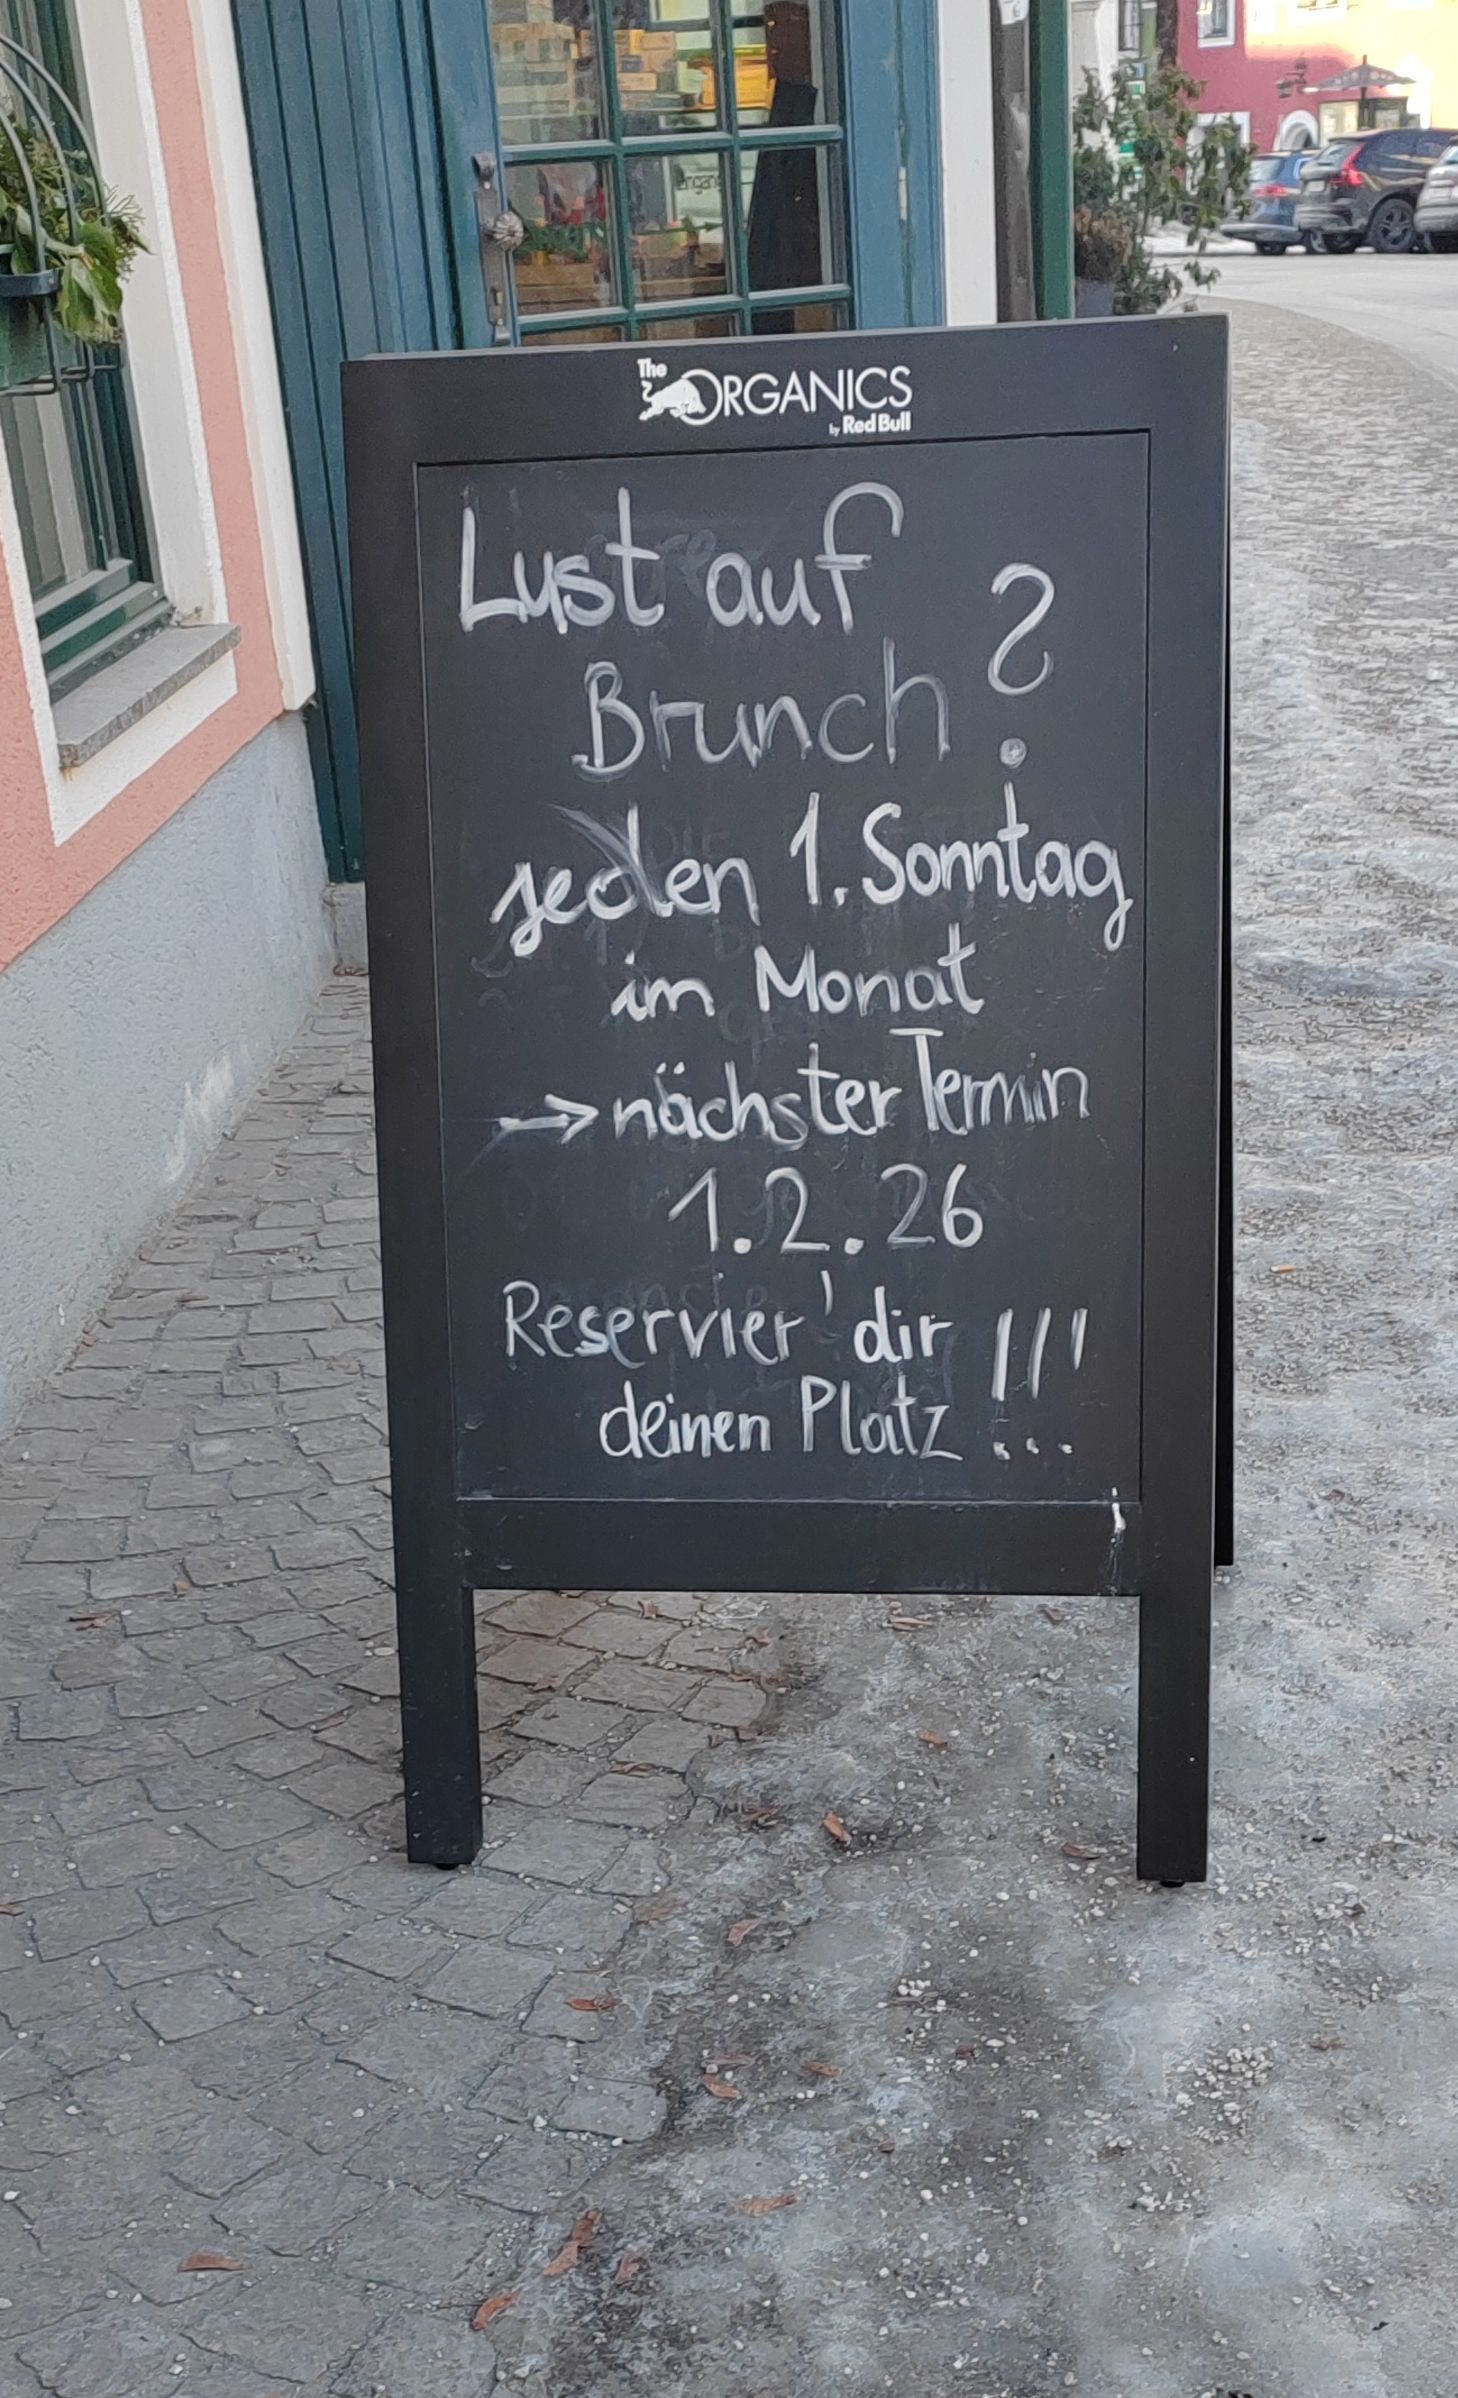 The
ORGANICS
by Red Bull
Lust auf
Brunch?
jeden 1. Sonntag
im Monat
→ nächster Termin
1.2.26
Reservier' dir
deinen Platz !!!